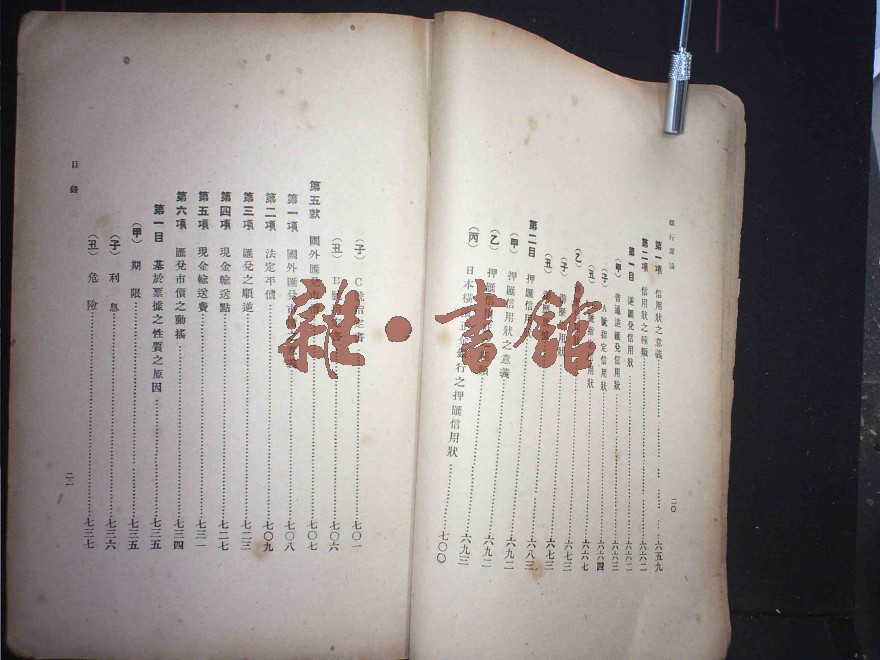 銀行原論
第一項 信用狀之意義 六五九
第二項 信用狀之種類 六六二
第一目 逆匯兌信用狀 六六二
(甲) 普通逆匯兌信用狀 六六三
(子) A號指定信用狀 六六四
(丑) 用狀 六六七
(乙) 六七三
(子) 用狀 六七三
(丑)
第二目 押匯信 六八三
(甲) 押匯信用狀之意義 六九二
(乙) 押匯信用 類 六九二
(丙) 日本橫 正金銀行之押匯信用狀 七〇〇
二〇
目錄
(子) C號指定書 七〇一
(丑) B號 七〇六
第五款 國外匯兌市 七〇七
第一項 國外匯兌 七〇八
第二項 法定平價 七〇九
第三項 匯兌之順逆 七二三
第四項 現金輸送點 七二七
第五項 現金輸送費 七三一
第六項 匯兌市價之動搖 七三四
第一目 基於票據之性質之原因 七三五
(甲) 期限 七三五
(子) 利息 七三六
(丑) 危險 七三七
二一
雜·書館